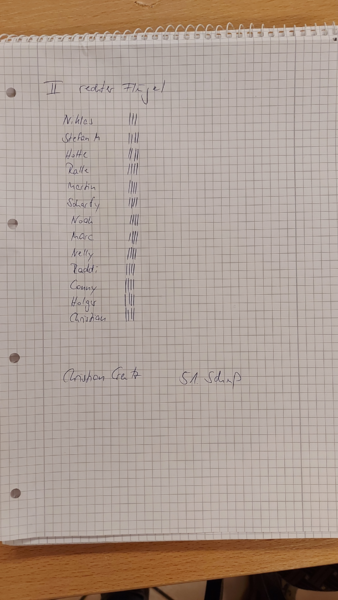 II rechter Flügel
Niklas ||||
Stefan M ||||
Hotte ||||
Ralle ||||
Martin ||||
Scharly ||||
Noah ||||
Marc ||||
Nelly ||||
||||
Conny ||||
Holger ||||
Christian ||||
Christian 51. Schuß